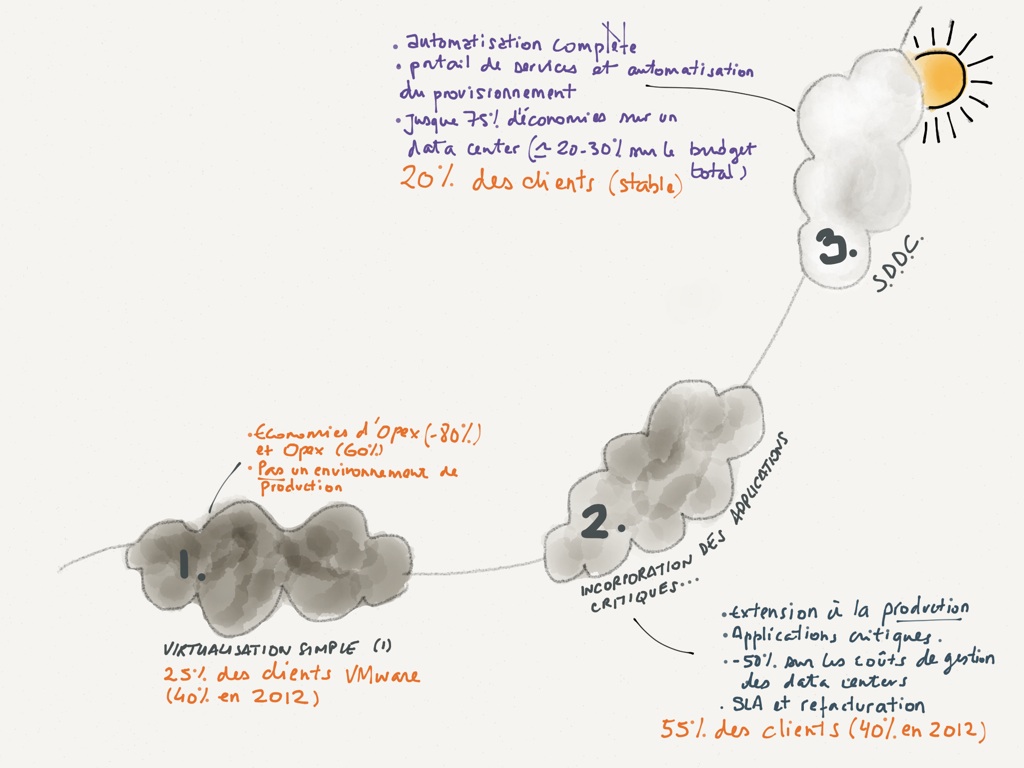 • automatisation complète
• portail de services et automatisation
du provisionnement
• Jusque 75% d'économies sur un
data center (~ 20-30% sur le budget
total)
20% des clients (stable)
3.
S.D.D.C.
• Economies d'Opex (-80%)
et Opex (60%)
• Pas un environnement de
Production
1.
VIRTUALISATION SIMPLE (1)
25% des clients VMware
(40% en 2012)
2.
INCORPORATION DES APPLICATIONS
CRITIQUES...
• Extension à la production
• Applications critiques.
• -50% sur les coûts de gestion
des data centers
. SLA et refacturation
55% des clients (40% en 2012)